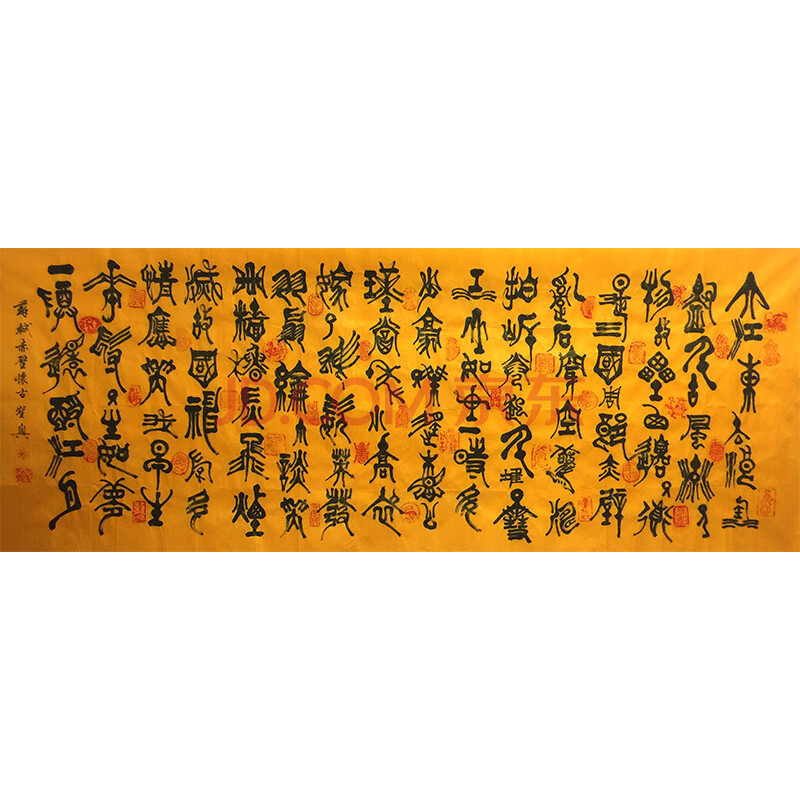 大江東去浪淘
盡千古風流人
物故壘西邊人道
是三國周郎赤壁
亂石穿空驚濤
拍岸卷起千堆雪
江山如畫一時多
少豪傑遙想公
瑾當年小喬初
嫁了雄姿英發
羽扇綸巾談笑
檣櫓灰飛煙
滅故國神遊多
情應笑我早生
華髮人生如夢
一尊還酹江月
蘇軾赤壁懷古
JD.COM 京东